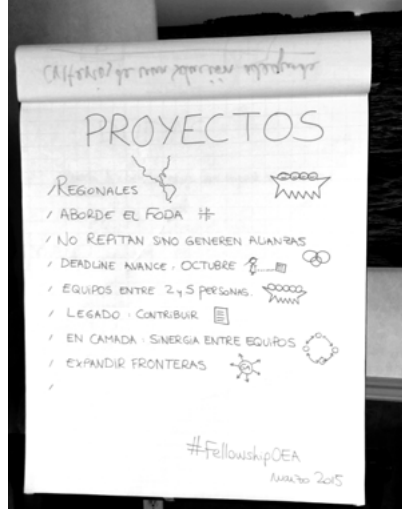 PROYECTOS
/ REGIONALES
/ ABORDE EL FODA
/ NO REPITAN SINO GENEREN ALIANZAS
/ DEADLINE AVANCE: OCTUBRE
/ EQUIPOS ENTRE 2 y 5 PERSONAS.
/ LEGADO: CONTRIBUIR
/ EN CAMADA: SINERGIA ENTRE EQUIPOS
/ EXPANDIR FRONTERAS
/
#FellowshipOEA
marzo 2015